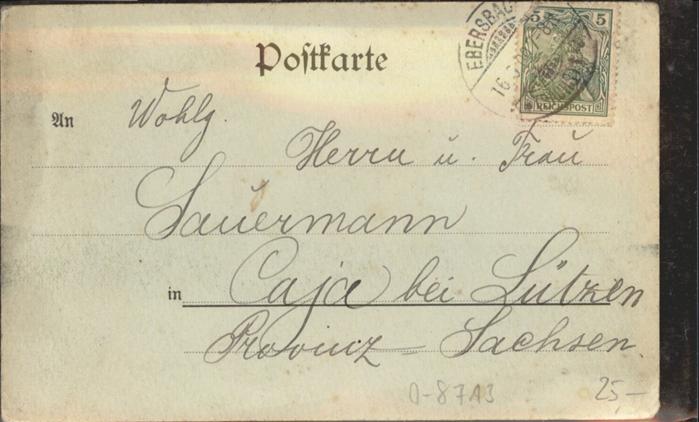 Postkarte
EBERSBACH
16
5 5
REICHSPOST
An Wohlg.
Herrn u. Frau
Sauermann
in Caja bei Lützen
Provinz Sachsen.
0-8713 25-